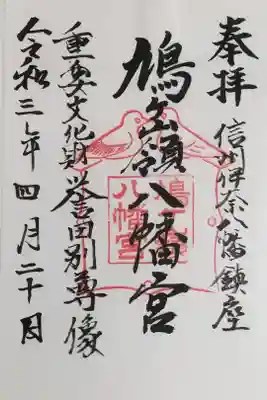 奉拝
信州伊奈八幡鎮座
鳩ヶ嶺八幡宮
重要文化財誉田別尊像
令和三年四月二十日
鳩ヶ嶺
八幡宮